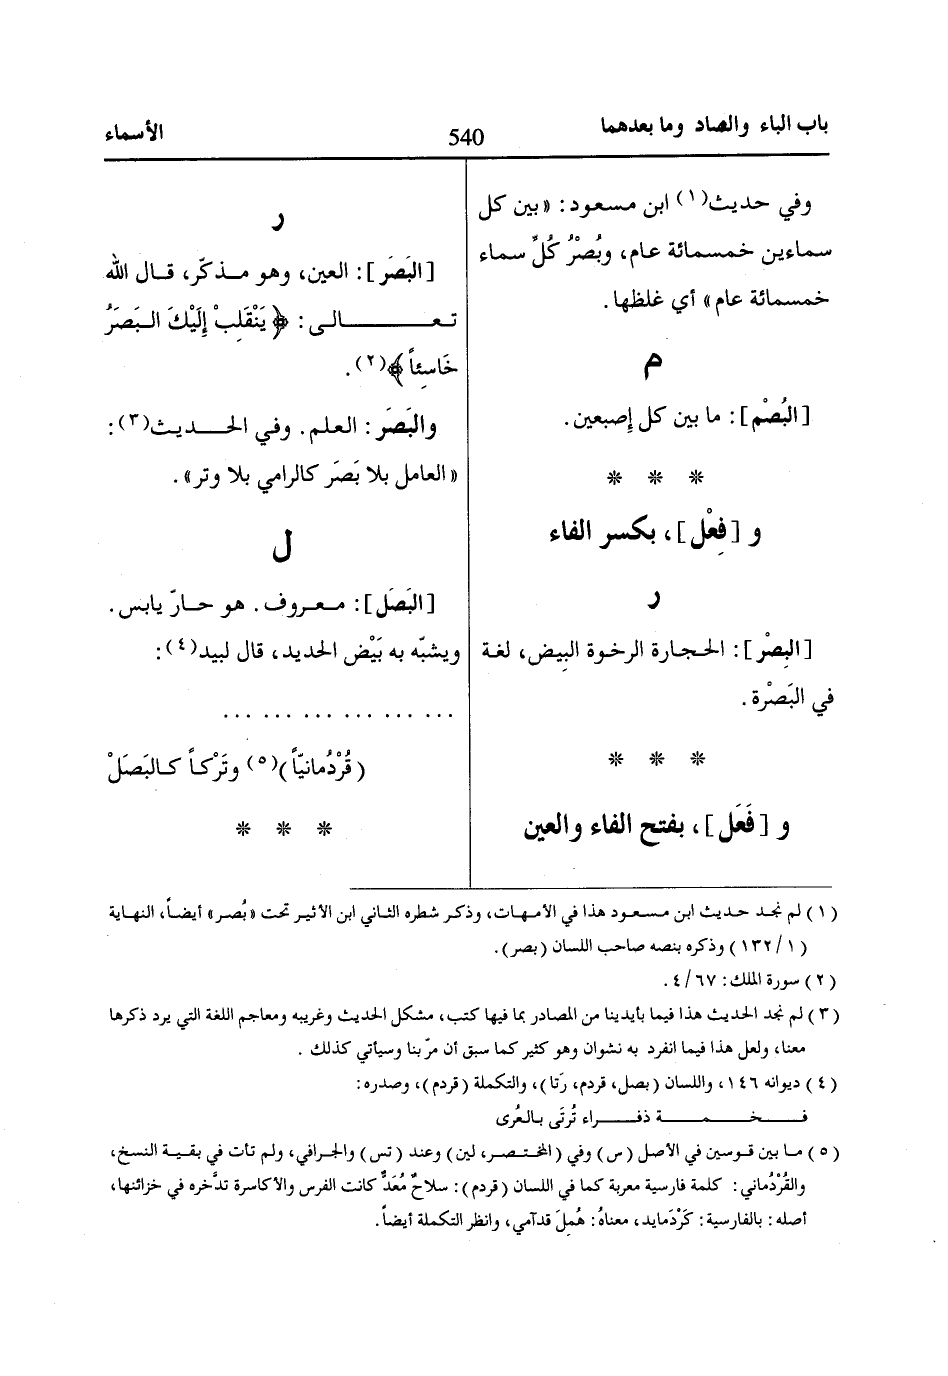 باب الباء والصاد وما بعدهما
540
الأسماء
وفي حديث(١) ابن مسعود: «بين كل
سماءين خمسمائة عام، وبُصْرُ كُلِّ سماء
خمسمائة عام» أي غلظها.
م
[البُصْم]: ما بين كل إصبعين.
* * *
و [فِعْل]، بكسر الفاء
ر
[البِصْر]: الحجارة الرخوة البيض، لغة
في البَصْرة.
* * *
و [فَعَل]، بفتح الفاء والعين
ر
[البَصَر]: العين، وهو مذكّر، قال الله
تعالى: ﴿يَنْقَلِبْ إِلَيْكَ البَصَرُ
خَاسِئاً﴾(٢).
والبَصَر: العلم. وفي الحديث(٣):
«العامل بلا بَصَر كالرامي بلا وتر».
ل
[البَصَل]: معروف. هو حارّ يابس.
ويشبّه به بَيْض الحديد، قال لبيد(٤):
... ... ... ... ... ...
(قُرْدُمانيّاً)(٥) وتَرْكاً كالبَصَلْ
* * *
(١) لم نجد حديث ابن مسعود هذا في الأمهات، وذكر شطره الثاني ابن الأثير تحت «بُصر» أيضاً، النهاية
(١/ ١٣٢) وذكره بنصه صاحب اللسان (بصر).
(٢) سورة الملك: ٦٧/ ٤.
(٣) لم نجد الحديث هذا فيما بأيدينا من المصادر بما فيها كتب، مشكل الحديث وغريبه ومعاجم اللغة التي يرد ذكرها
معنا، ولعل هذا فيما انفرد به نشوان وهو كثير كما سبق أن مرّ بنا وسيأتي كذلك.
(٤) ديوانه ١٤٦، واللسان (بصل، قردم، رَتا)، والتكملة (قردم)، وصدره:
فخمة ذفراء تُرتَى بالعُرى
(٥) ما بين قوسين في الأصل (س) وفي (المختصر، لين) وعند (تس) والجرافي، ولم تأت في بقية النسخ،
والقُرْدُماني: كلمة فارسية معربة كما في اللسان (قردم): سلاحٌ مُعَدٌّ كانت الفرس والأكاسرة تدَّخره في خزائنها،
أصله: بالفارسية: كَرْدَمايد، معناهُ: هُمِلَ قدآمي، وانظر التكملة أيضاً.